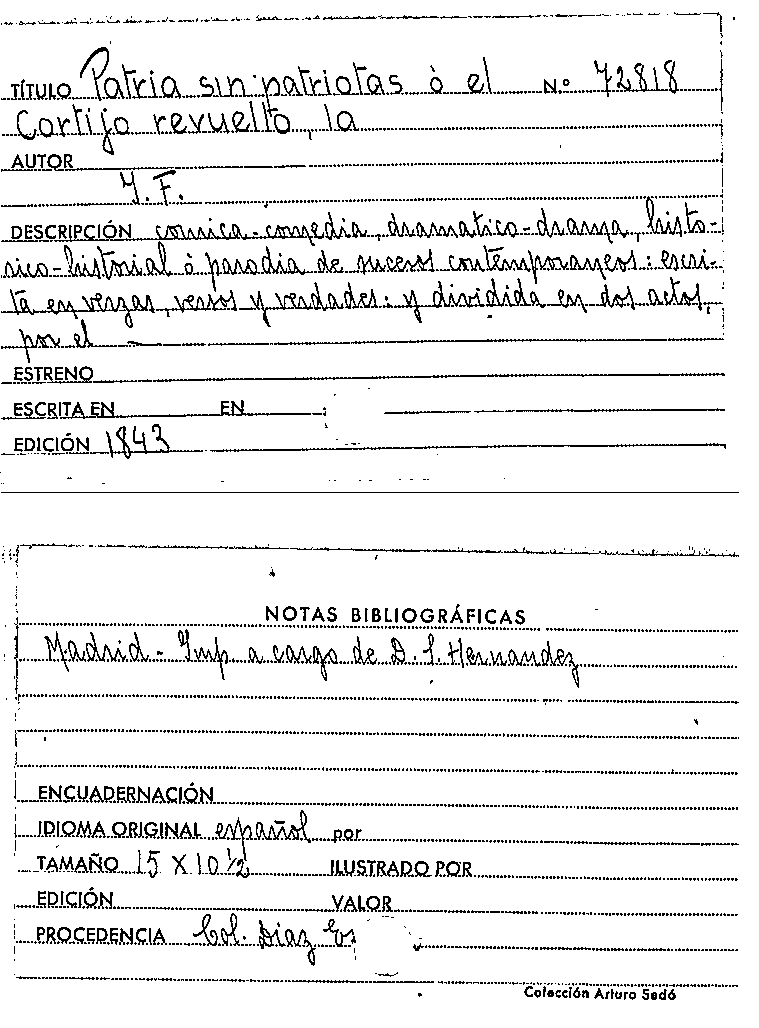 TÍTULO Patria sin patriotas ò el Nº 72818
Cortijo revuelto, la
AUTOR
F.
DESCRIPCIÓN comica-comedia, dramatico-drama, histo-
rico-historial ò parodia de sucesos contemporaneos: escri-
ta en verzas, versos y verdades: y dividida en dos actos,
por el
ESTRENO
ESCRITA EN EN
EDICIÓN 1843
NOTAS BIBLIOGRÁFICAS
Madrid - Imp. a cargo de D. S. Hernandez
ENCUADERNACIÓN
IDIOMA ORIGINAL español por
TAMAÑO 15 X 10 ½ ILUSTRADO POR
EDICIÓN VALOR
PROCEDENCIA Col. Diaz
Colección Arturo Sedó